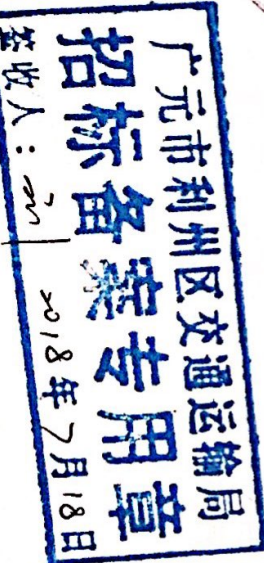 广元市利州区交通运输局
招标备案专用章
签收人： 2018年7月18日